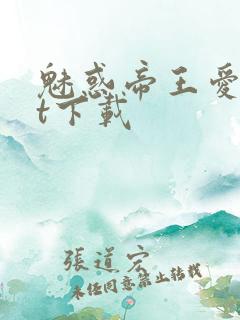 魅惑帝王爱
t下载
張道宏
未经同意禁止转载